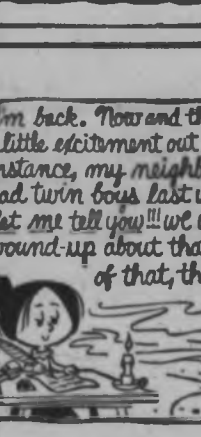 I'm back. Now and th
little excitement out
nstance, my neighb
ad twin boys last w
let me tell you!!! we
wound-up about tha
of that, th